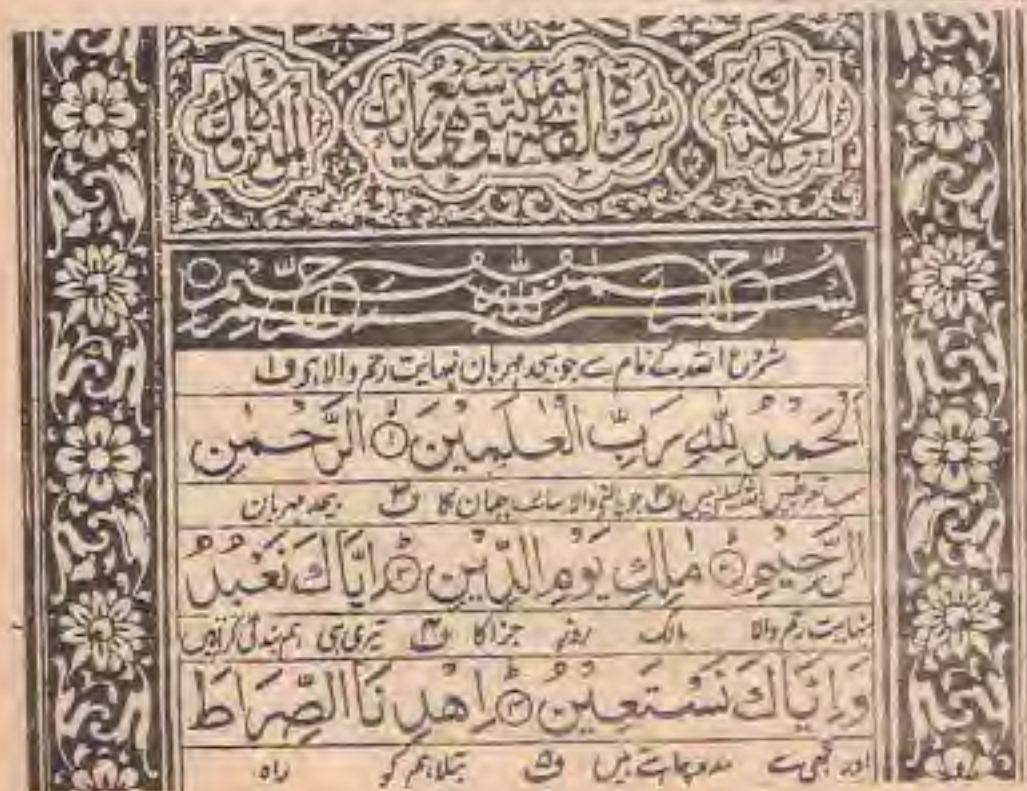 الجزء الاول
سورة الفاتحة مكية وهي سبع ايات
المنزل الاول
بِسْمِ اللهِ الرَّحْمٰنِ الرَّحِيْمِ
شروع اللہ کے نام سے جو بیحد مہربان نہایت رحم والا ہے ف۱
اَلْحَمْدُ لِلّٰهِ رَبِّ الْعٰلَمِيْنَ ۱ الرَّحْمٰنِ
سب تعریفیں اللہ کیلئے ہیں ف۲ جو پالنے والا سارے جہان کا ف۳ بیحد مہربان
الرَّحِيْمِ ۲ مٰلِكِ يَوْمِ الدِّيْنِ ۳ اِيَّاكَ نَعْبُدُ
نہایت رحم والا مالک روز جزا کا ف۴ تیری ہی ہم بندگی کرتے ہیں
وَاِيَّاكَ نَسْتَعِيْنُ ۴ اِهْدِنَا الصِّرَاطَ
اور تجھی سے مدد چاہتے ہیں ف۵ بتلا ہم کو راہ